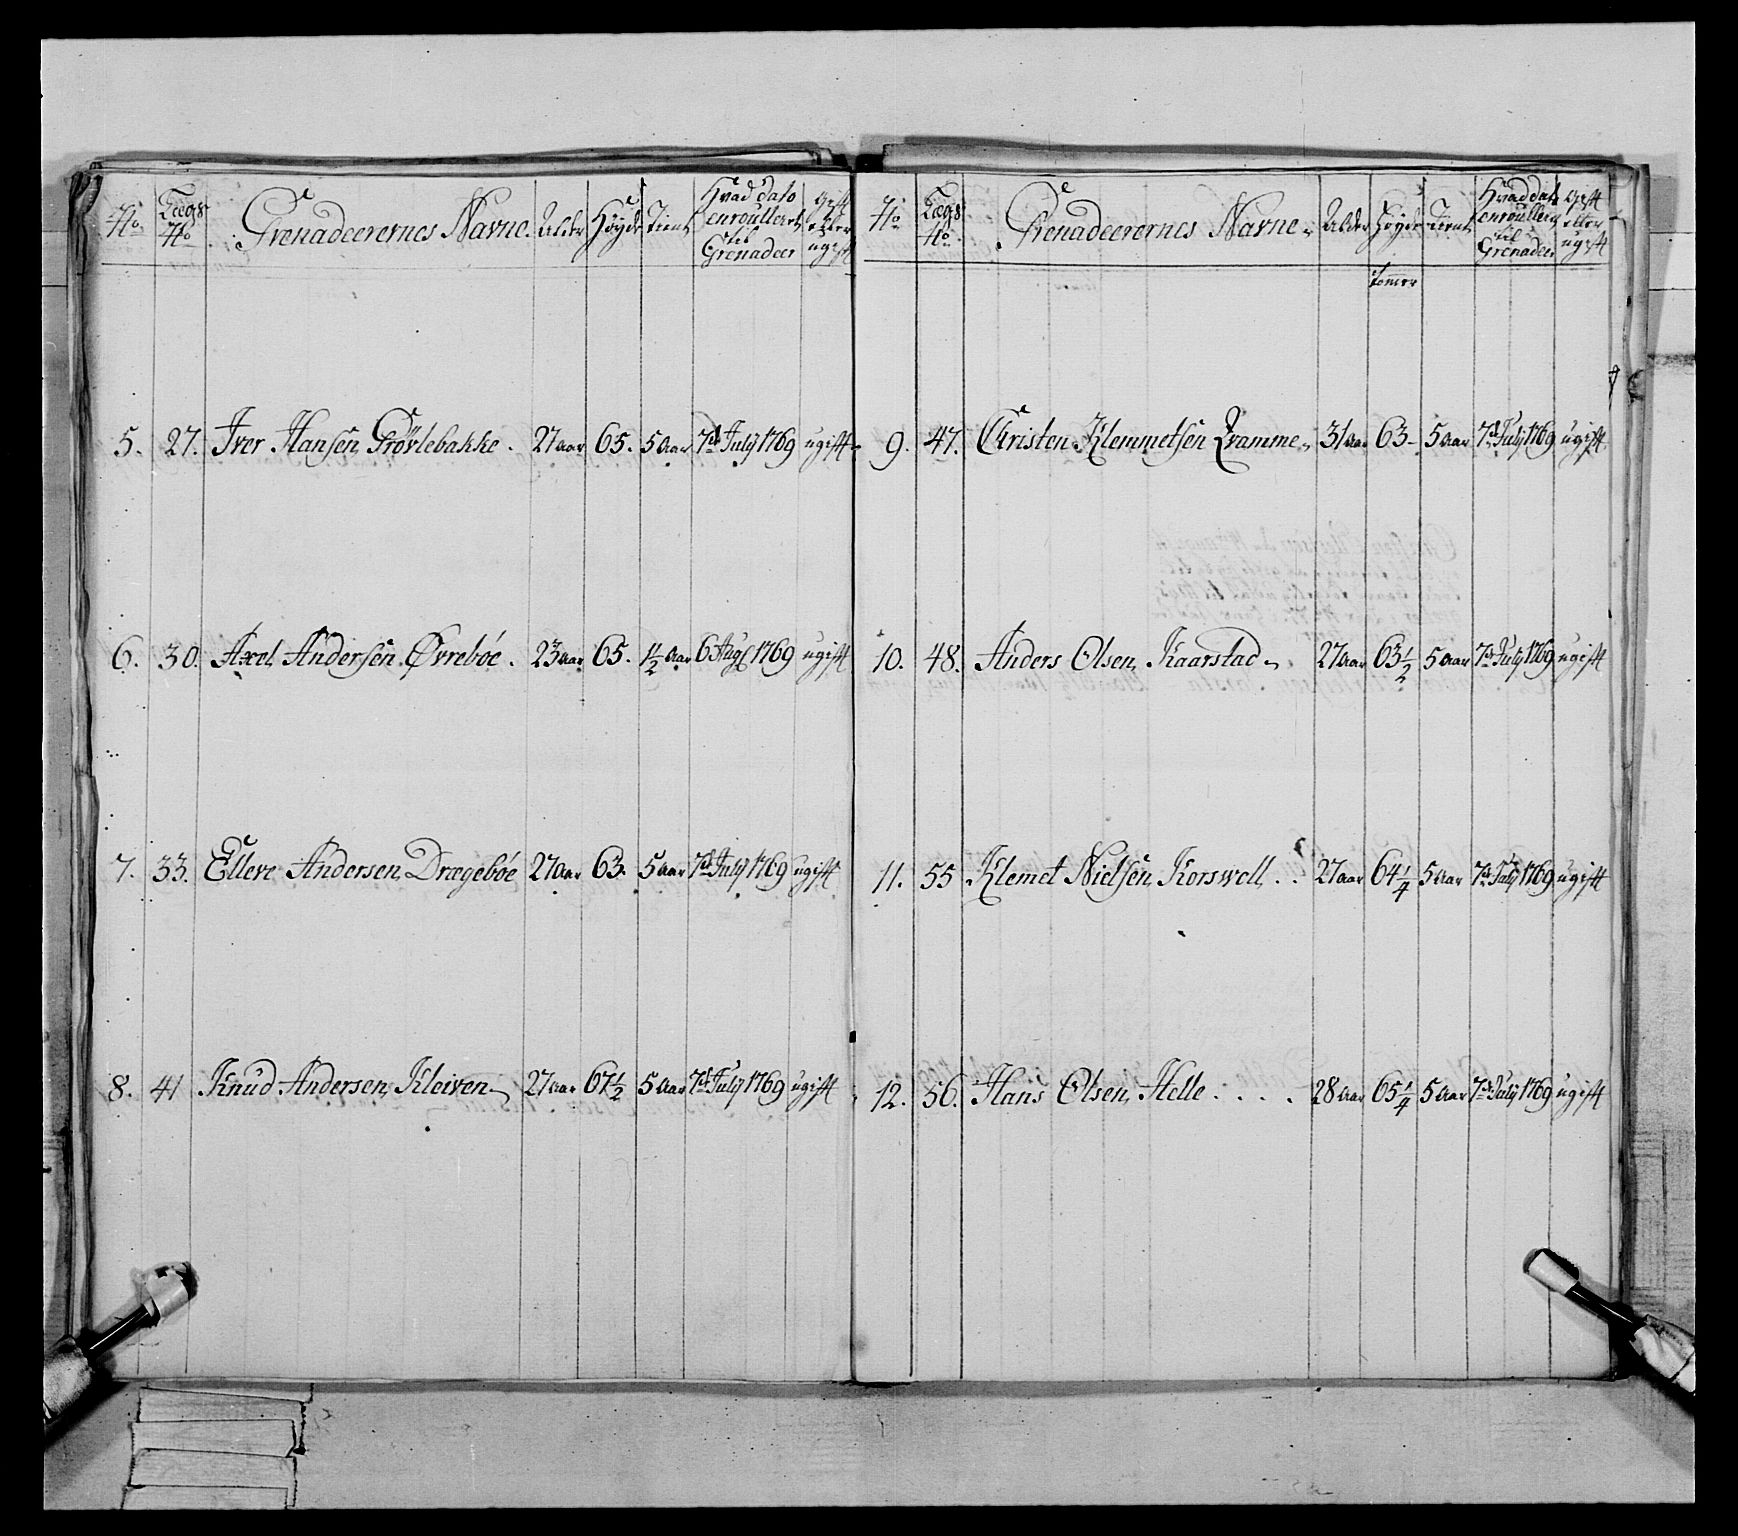 No Lægs No Grenadeerernes Navne Alder Höyde Tient Hvad dato enroullert til Grenadeer Gift eller ugift
5. 27. Iver Hansen Grövlebakke. 27 aar 65. 5 aar 7de July 1769 ugift
6. 30. Axel Andersen Øvreböe. 23 aar 65. 1½ aar 6 Aug 1769 ugift
7. 33. Elleve Andersen Drægebøe 27 aar 63. 5 aar 7de July 1769 ugift
8. 41 Knud Andersen Kleiven 27 aar 67½ 5 aar 7de July 1769 ugift
No Lægs No Grenadeerernes Navne Alder Höyde Tient Hvad dato enroullert til Grenadeer Gift eller ugift
Tommer
9. 47. Christen Klemmetsen Qvamme 31 aar 63 5 aar 7de July 1769 ugift
10. 48. Anders Olsen Kaarstad 27 aar 63½ 5 aar 7de July 1769 ugift
11. 55 Klemet Nielsen Korswoll 27 aar 64¼ 5 aar 7de July 1769 ugift
12. 56. Hans Olsen Helle 28 aar 65¼ 5 aar 7de July 1769 ugift